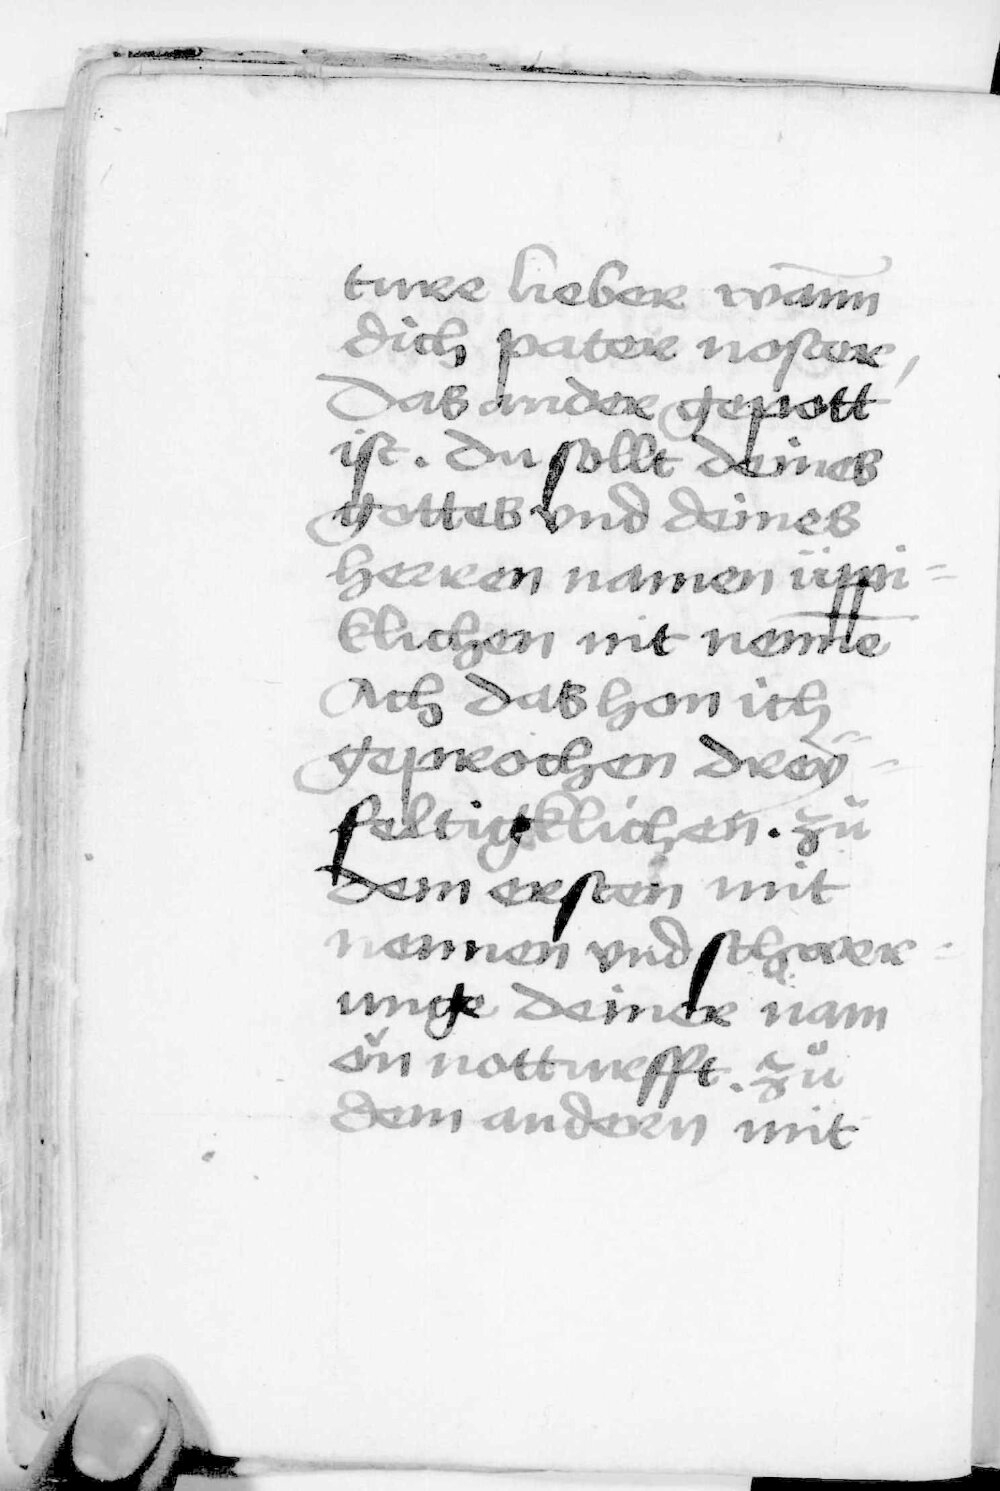 ture lieber wann̄
dich pater noster,
Das ander gepott
ist. Du sollt deines
gottes vnd deines
herren namen üppi=
klichen nit nenn̄e
Ach das hon ich
geprochen drey=
feltigklichen. zů
dem ersten mit
nennen vnd schwer=
unge deiner nam
ön notturfft. zů
dem andern mit